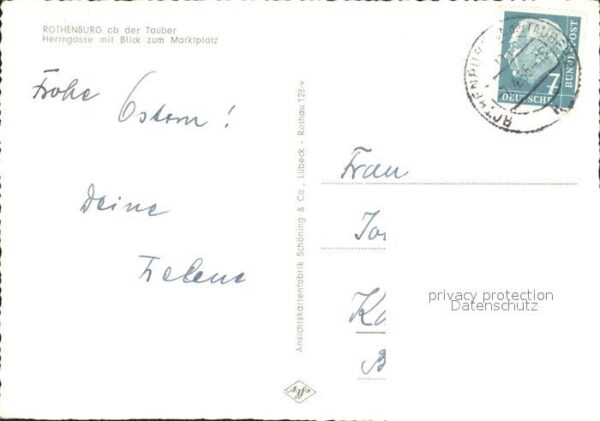 ROTHENBURG ob der Tauber
Heringasse mit Blick zum Marktplatz
Frohe
Ostern!
Deine
Helene
Ansichtskartenfabrik Schöning & Co., Lübeck - Rothau 128-v
Agfa
7
DEUTSCHE
BUNDESPOST
Frau
privacy protection
Datenschutz